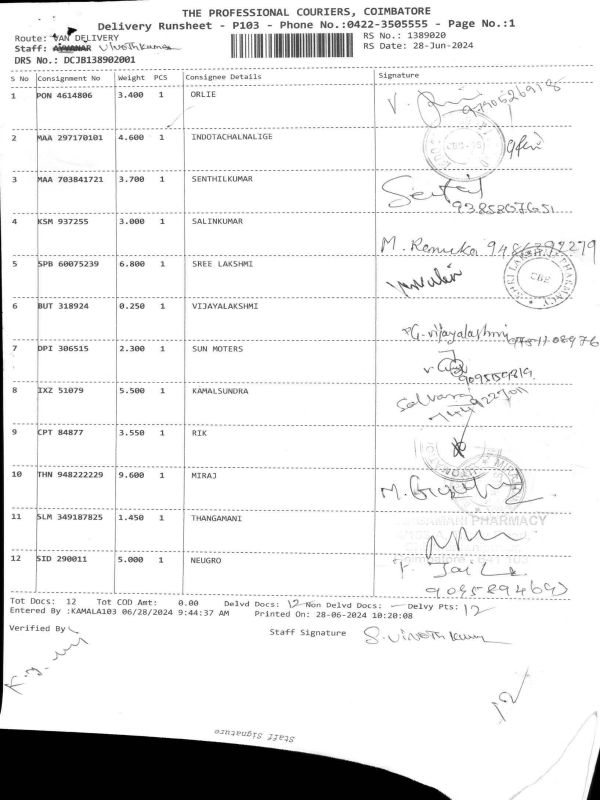 THE PROFESSIONAL COURIERS, COIMBATORE
Delivery Runsheet - P103 - Phone No.:0422-3505555 - Page No.:1
Route: VAN DELIVERY
RS No.: 1389020
Staff: Vinothkumar
RS Date: 28-Jun-2024
DRS No.: DCJB138902001
S No Consignment No Weight PCS Consignee Details Signature
1 PON 4614806 3.400 1 ORLIE
2 MAA 297170101 4.600 1 INDOTACHALNALIGE
3 MAA 703841721 3.700 1 SENTHILKUMAR
9385807651
4 KSM 937255 3.000 1 SALINKUMAR
M. Renuka
5 SPB 60075239 6.800 1 SREE LAKSHMI
SHRI LAKSHMI PHARMACY CBE
6 BUT 318924 0.250 1 VIJAYALAKSHMI
G. vijayalashmi
7 DPI 306515 2.300 1 SUN MOTERS
8 IXZ 51079 5.500 1 KAMALSUNDRA
Selvaraj
9 CPT 84877 3.550 1 RIK
10 THN 948222229 9.600 1 MIRAJ
11 SLM 349187825 1.450 1 THANGAMANI
PHARMACY
12 SID 290011 5.000 1 NEUGRO
Tot Docs: 12 Tot COD Amt: 0.00 Delvd Docs: 12 Non Delvd Docs: - Delvy Pts: 12
Entered By :KAMALA103 06/28/2024 9:44:37 AM Printed On: 28-06-2024 10:20:08
Verified By
Staff Signature S. Vinothkumar
12
Staff Signature